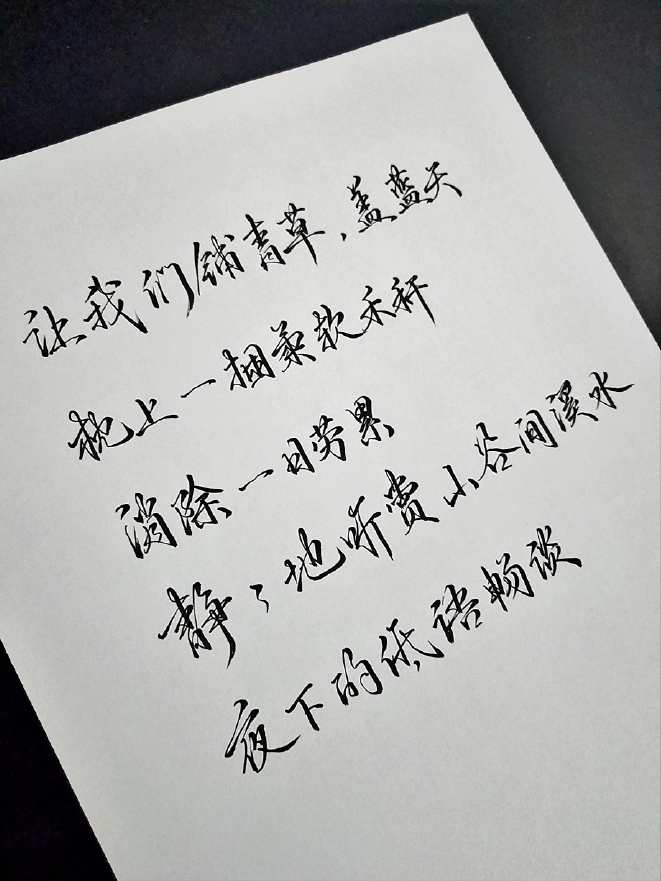 让我们铺青草,盖蓝天
枕上一捆柔软禾秆
消除一日劳累
静静地听赏山谷间溪水
夜下的低语畅谈